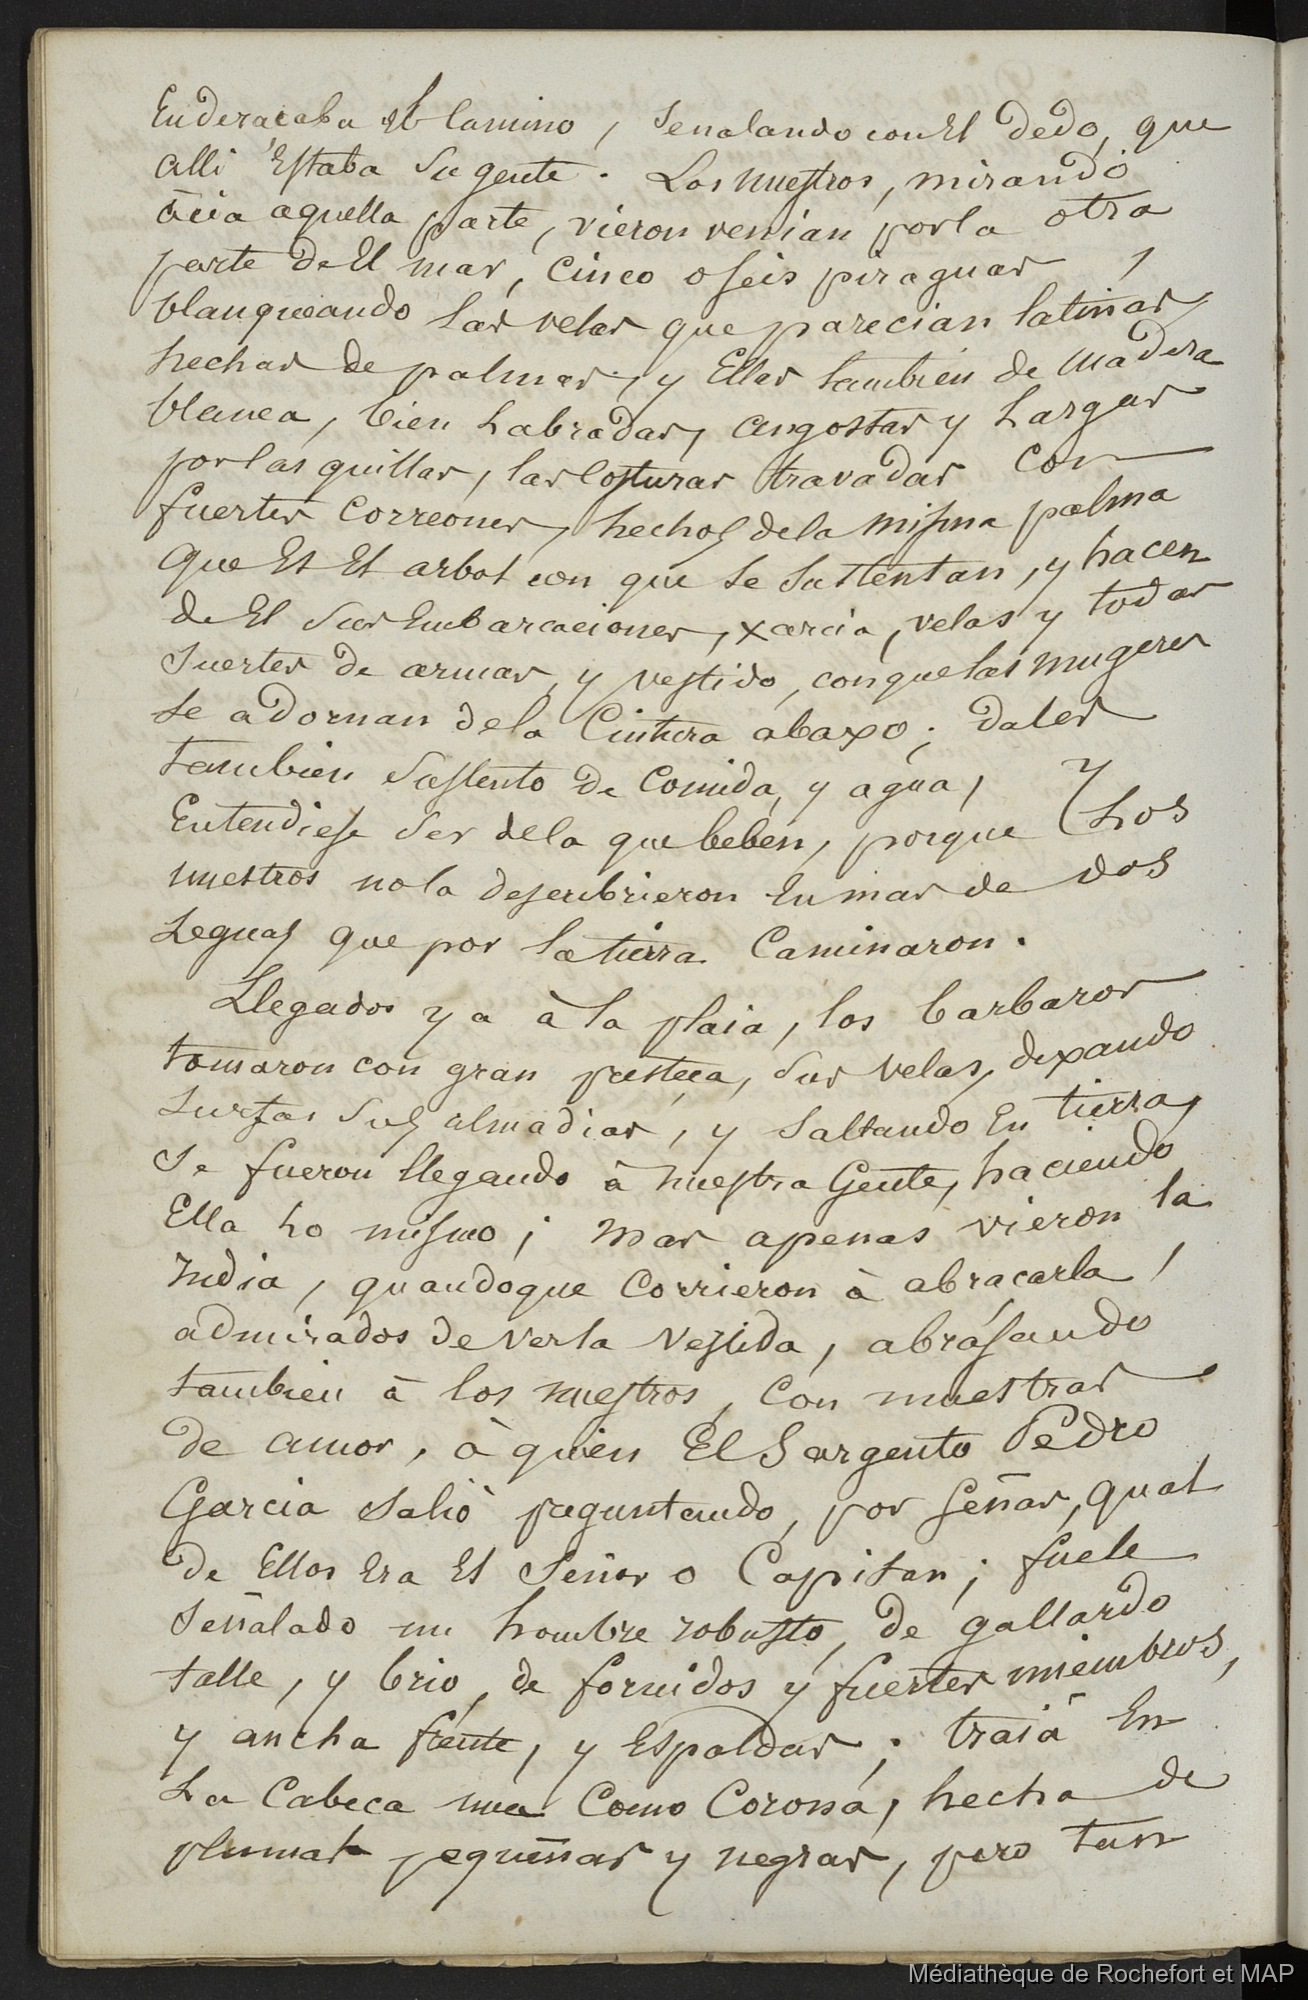 Enderaçaba el Camino, Senalando con El dedo, que
alli Estaba Su gente. Los nuestros, mirando
àcia aquella parte, vieron venian por la otra
parte de El mar, Cinco o seis piraguas,
blanqueando las velas que parecian latinas,
hechas de palmas, y Ellas tambien de madera
blanca, bien Labradas, angostas y Largas
por las quillas, las Costuras travadas con
fuertes Correones, hechos de la misma palma
que Es El arbol con que se Sustentan, y hacen
de El Sus Embarcaciones, xarcia, velas y todas
Suertes de armas, y vestido, con que las mugeres
se adornan de la Cintura abaxo; dales
tambien Sustento de Comida, y agua, y
Entendiese Ser de la que beben, porque Los
nuestros no la descubrieron En mas de dos
Leguas que por la tierra Caminaron.
Llegados ya à la plaia, los barbaros
tomaron con gran presteça, Sus velas, dexando
Surtas Sus almadias, y Saltando En tierra,
Se fueron llegando à nuestra Gente, haciendo
Ella Lo mismo; mas apenas vieron la
India, quando que Corrieron à abracarla,
admirados de verla Vestida, abrasando
tambien à los nuestros, Con muestras
de amor, à quien El Sargento Pedro
Garcia Saliò preguntando, por Señas, qual
de Ellos Era El Señor o Capitan; fuele
Señalado un hombre robusto, de gallardo
talle, y brio, de fornidos y fuertes miembros,
y ancha frente, y Espaldas; traiá En
La Cabeça una Como Corona, hecha de
plumas pequeñas y negras, pero tan
Médiathèque de Rochefort et MAP